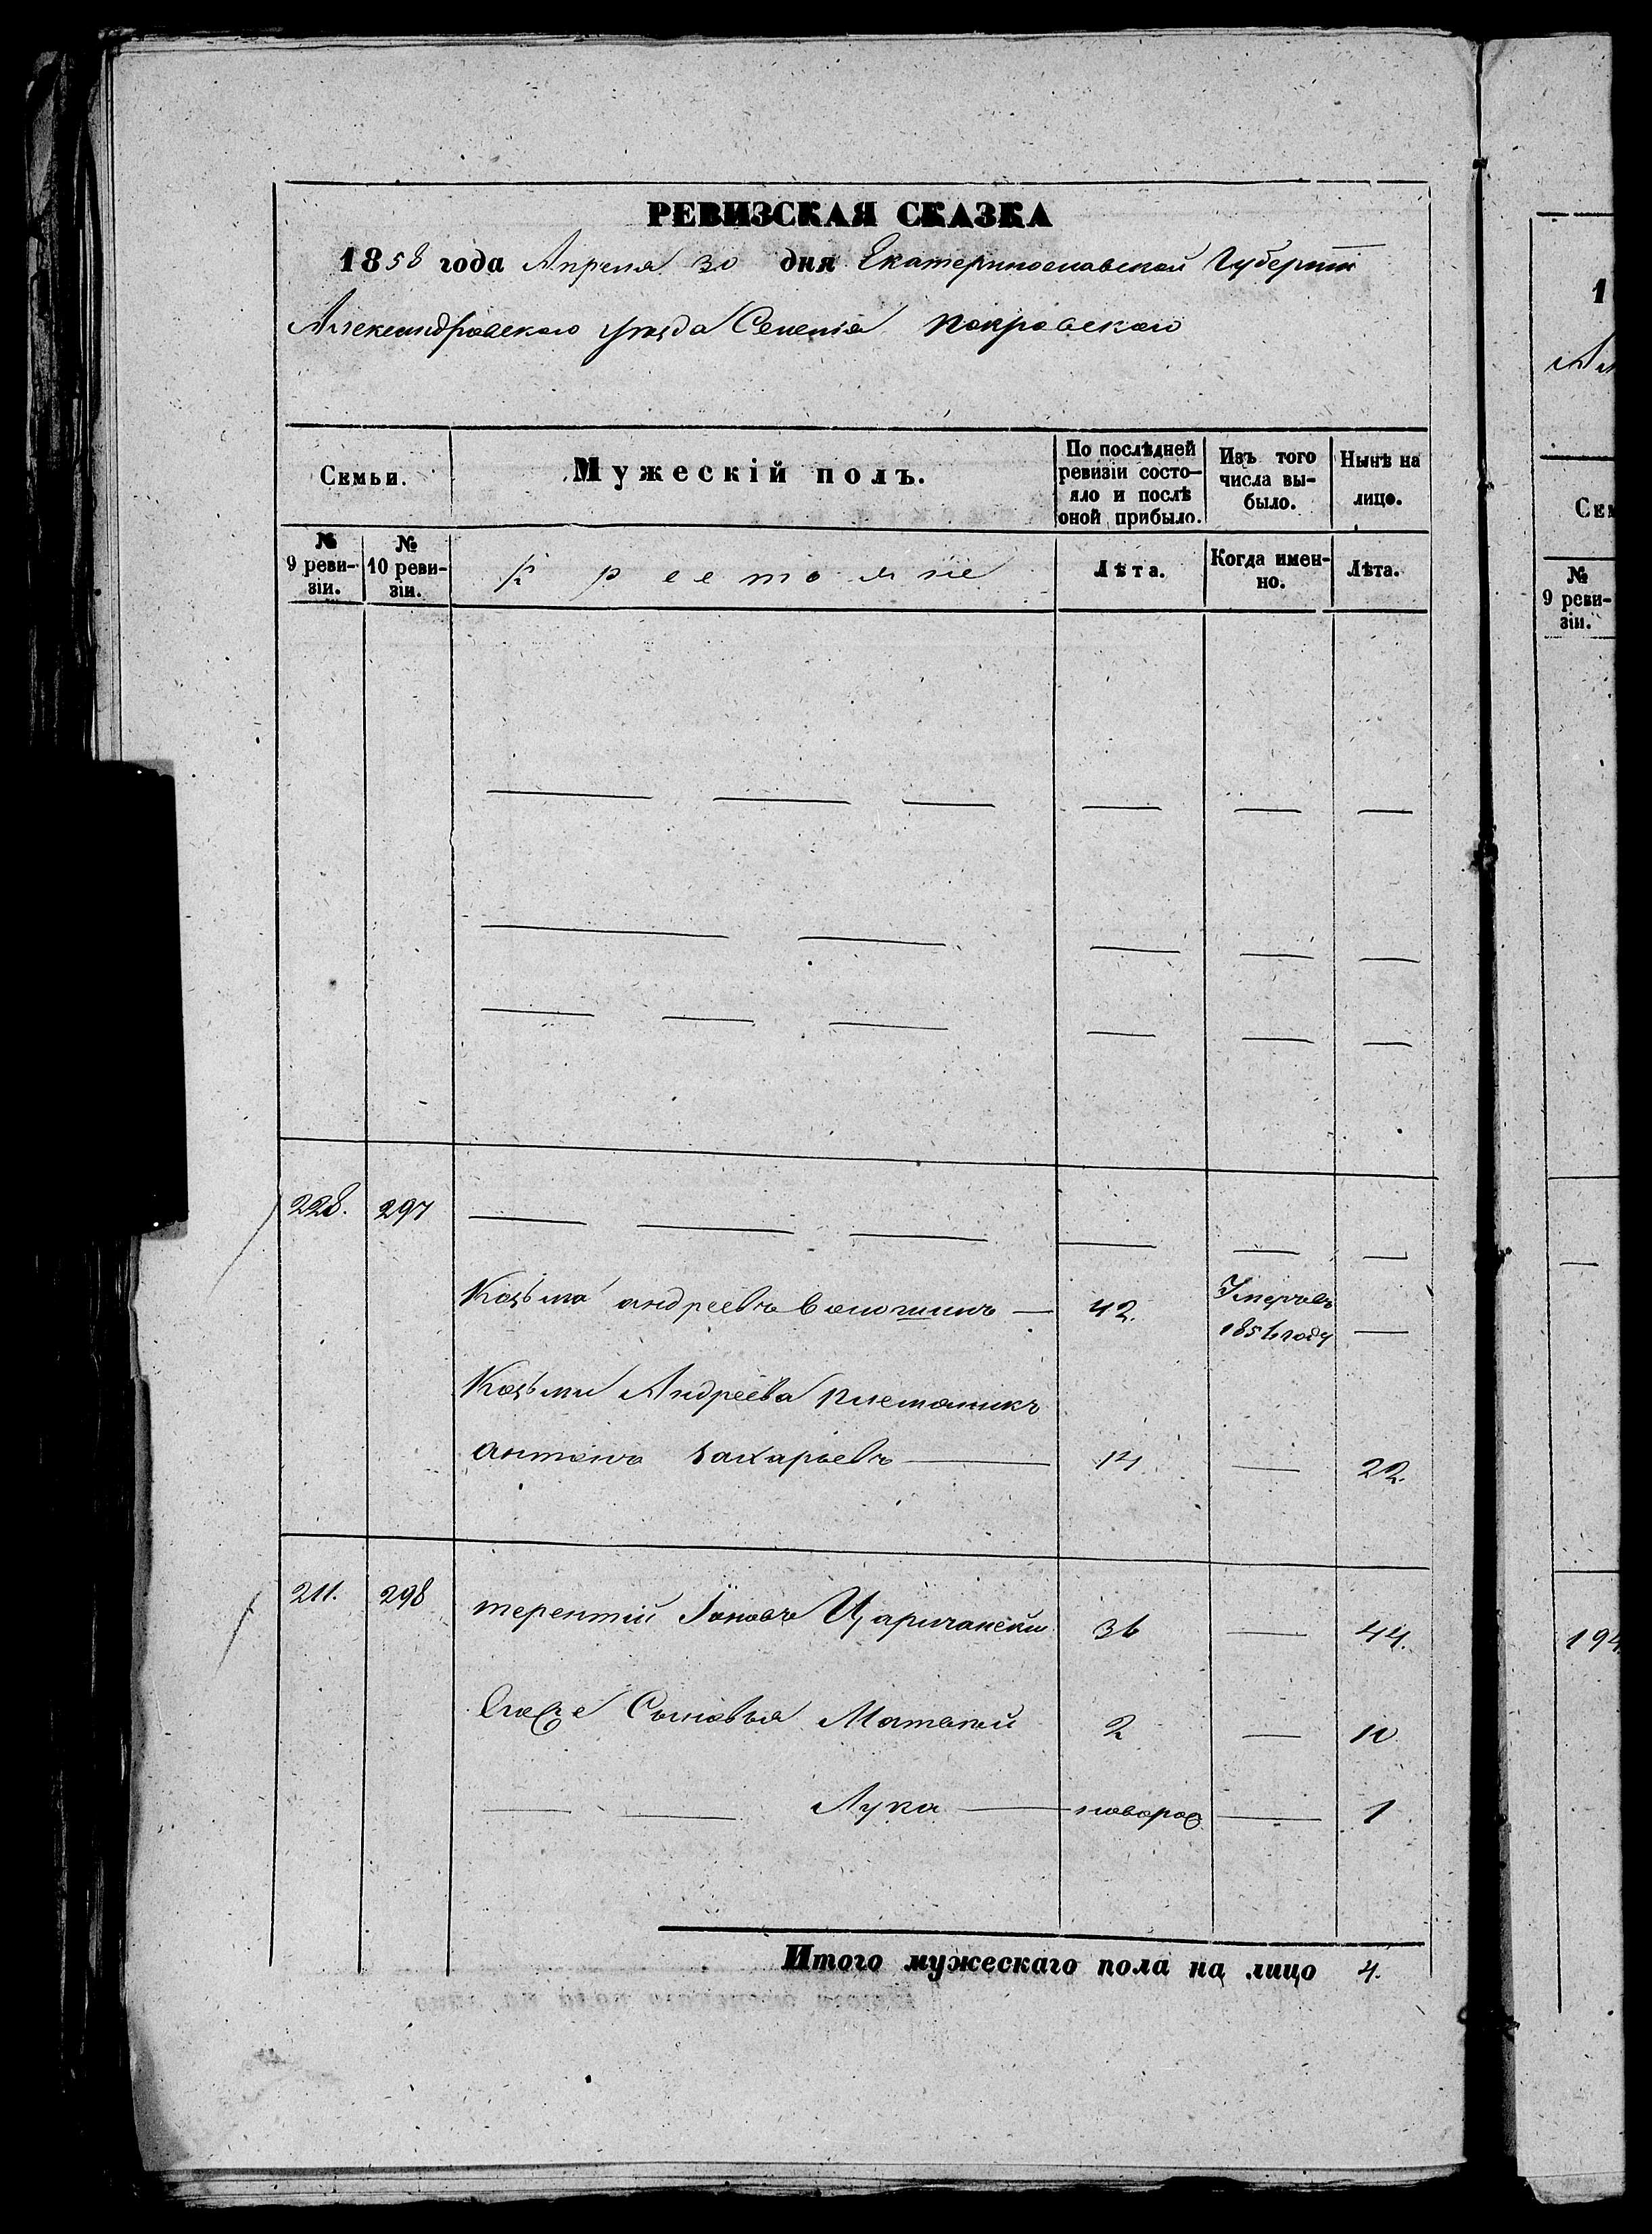 РЕВИЗСКАЯ СКАЗКА
1858 года Апреля 30 дня Екатеринославской Губерніи
Александровскаго уезда Селенія Покровскаго
Семьи.
Мужескій полъ.
По послѣдней ревизіи состояло и послѣ оной прибыло.
Изъ того числа выбыло.
Нынѣ на лицо.
№ 9 ревизіи.
№ 10 ревизіи.
Крестьяне
Лѣта.
Когда именно.
Лѣта.
228. 297
Козьма андреевъ Волошинъ — 42. Умеръ въ 1856 году —
Козьми Андреева племяникъ
антонъ Захарьевъ — 14 — 22.
211. 298 терентій Іоновъ Царичански 36 — 44.
Сыновья Матвей 2 — 10
Лука — новорож — 1
Итого мужескаго пола на лицо 4.
1
Ал
Сем
№ 9 ревизіи.
194